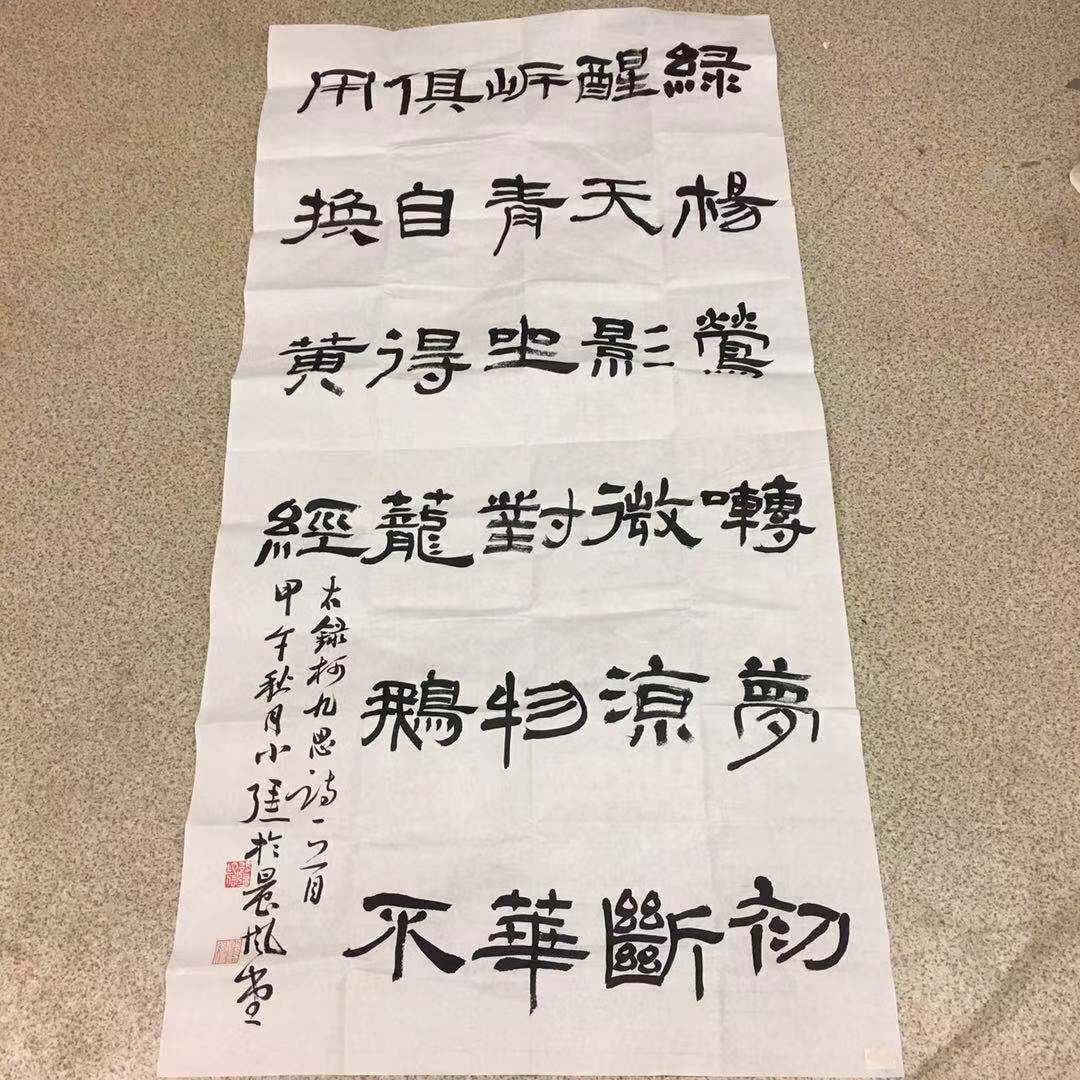 綠楊鶯囀夢初
醒天影微涼斷
岸青坐對物華
俱自得蘢鵝不
用換黃經
右錄柯九思詩一首
甲午秋月小於晨風堂